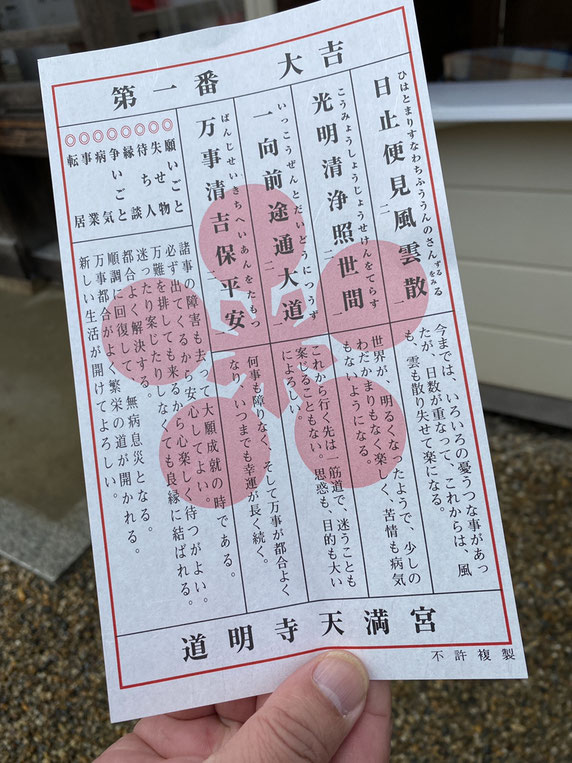 第一番 大吉
日止便見二風雲散一
ひはとまりすなわちふううんのさんずるをみる
今までは、いろいろの憂うつな事があっ
たが、日数が重なって、これからは、風
も、雲も散り失せて楽になる。
光明清浄照二世間一
こうみょうしょうじょうせけんをてらす
世界が、明るくなったようで、少しの
わだかまりもなく楽しく、苦情も病気
もないようになる。
一向前途通二大道一
いっこうぜんとだいどうにつうず
これから行く先は一筋道で、迷うことも
案じることもない。思惑も、目的も大い
によろしい。
万事清吉保二平安一
ばんじせいきちへいあんをたもつ
何事も障りなく、そして万事が都合よく
なり、いつまでも幸運が長く続く。
◎願いごと 諸事の障害も去って大願成就の時である。
◎失せ物 必ず出てくるから安心してよい。
◎待ち人 万難を排しても来るから心楽しく待つがよい。
◎縁談 迷ったり案じたりしなくても良縁に結ばれる。
◎争いごと 都合よく解決する。
◎病気 順調に回復して、無病息災となる。
◎事業 万事都合がよく、繁栄の道が開かれる。
◎転居 新しい生活が開けてよろしい。
道明寺天満宮
不許複製